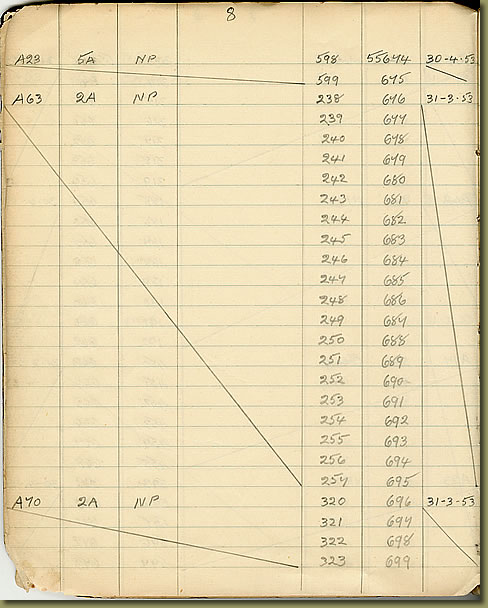 8
A23 5A NP 598 55674 30-4-53
599 675
A63 2A NP 238 676 31-3-53
239 677
240 678
241 679
242 680
243 681
244 682
245 683
246 684
247 685
248 686
249 687
250 688
251 689
252 690
253 691
254 692
255 693
256 694
257 695
A70 2A NP 320 696 31-3-53
321 697
322 698
323 699